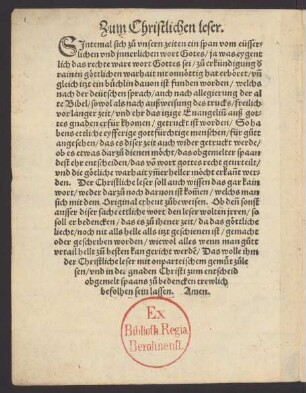 Zum Christlichen leser.
SIntemal sich zů vnsern zeiten ein span vom eüsser-
lichen vnd jnnerlichen wort Gottes/ ja was eygent
lich das rechte ware wort Gottes sei/ zů erkündigung d
rainen götlichen warhait nit vnnöttig hat erhöret/ vñ
gleich itzt ein büchlin dauon ist funden worden/ welchs
nach der deütschen sprach/ auch nach allegierung der al
te Bibel/ sowol als nach außweisung des trucks/ freilich
vor langer zeit/ vnd ehr das itzige Euangeliũ auß got-
tes gnaden erfür khomen/ getruckt ist worden/ So ha
bens ettliche eyfferige gottfürchtige menschen/ für gůtt
angesehen/ das es diser zeit auch wider getruckt werde/
ob es etwas darzů dienen möcht/ das obgemelter spaan
dest ehr entscheiden/ das vō wort gottes recht geurteilt/
vnd die götliche warhait ymer heller möcht erkañt wer-
den. Der Christliche leser soll auch wissen das gar kain
wort/ weder darzů noch daruon ist komen/ welchs man
sich mit dem Original erbeut zůbeweisen. Ob deñ sonst
ausser diser sach ettliche wort den leser wolten jrren/ ja
soll er bedencken/ das es zů jhener zeit/ da das götliche
liecht/ noch nit alls helle alls itzt geschienen ist/ gemacht
oder geschriben worden/ wiewol alles wenn man gůtt
vrtail hellt zů besten kan gericht werdē/ Das wolle jhm
der Christliche leser mit onparteischem gemüt zůle
sen/ vnd in der gnaden Christi zum entscheid
obgemelt spaans zů bedencken trewlich
befolhen sein lassen. Amen.
Ex
Biblioth. Regia
Berolinensi.